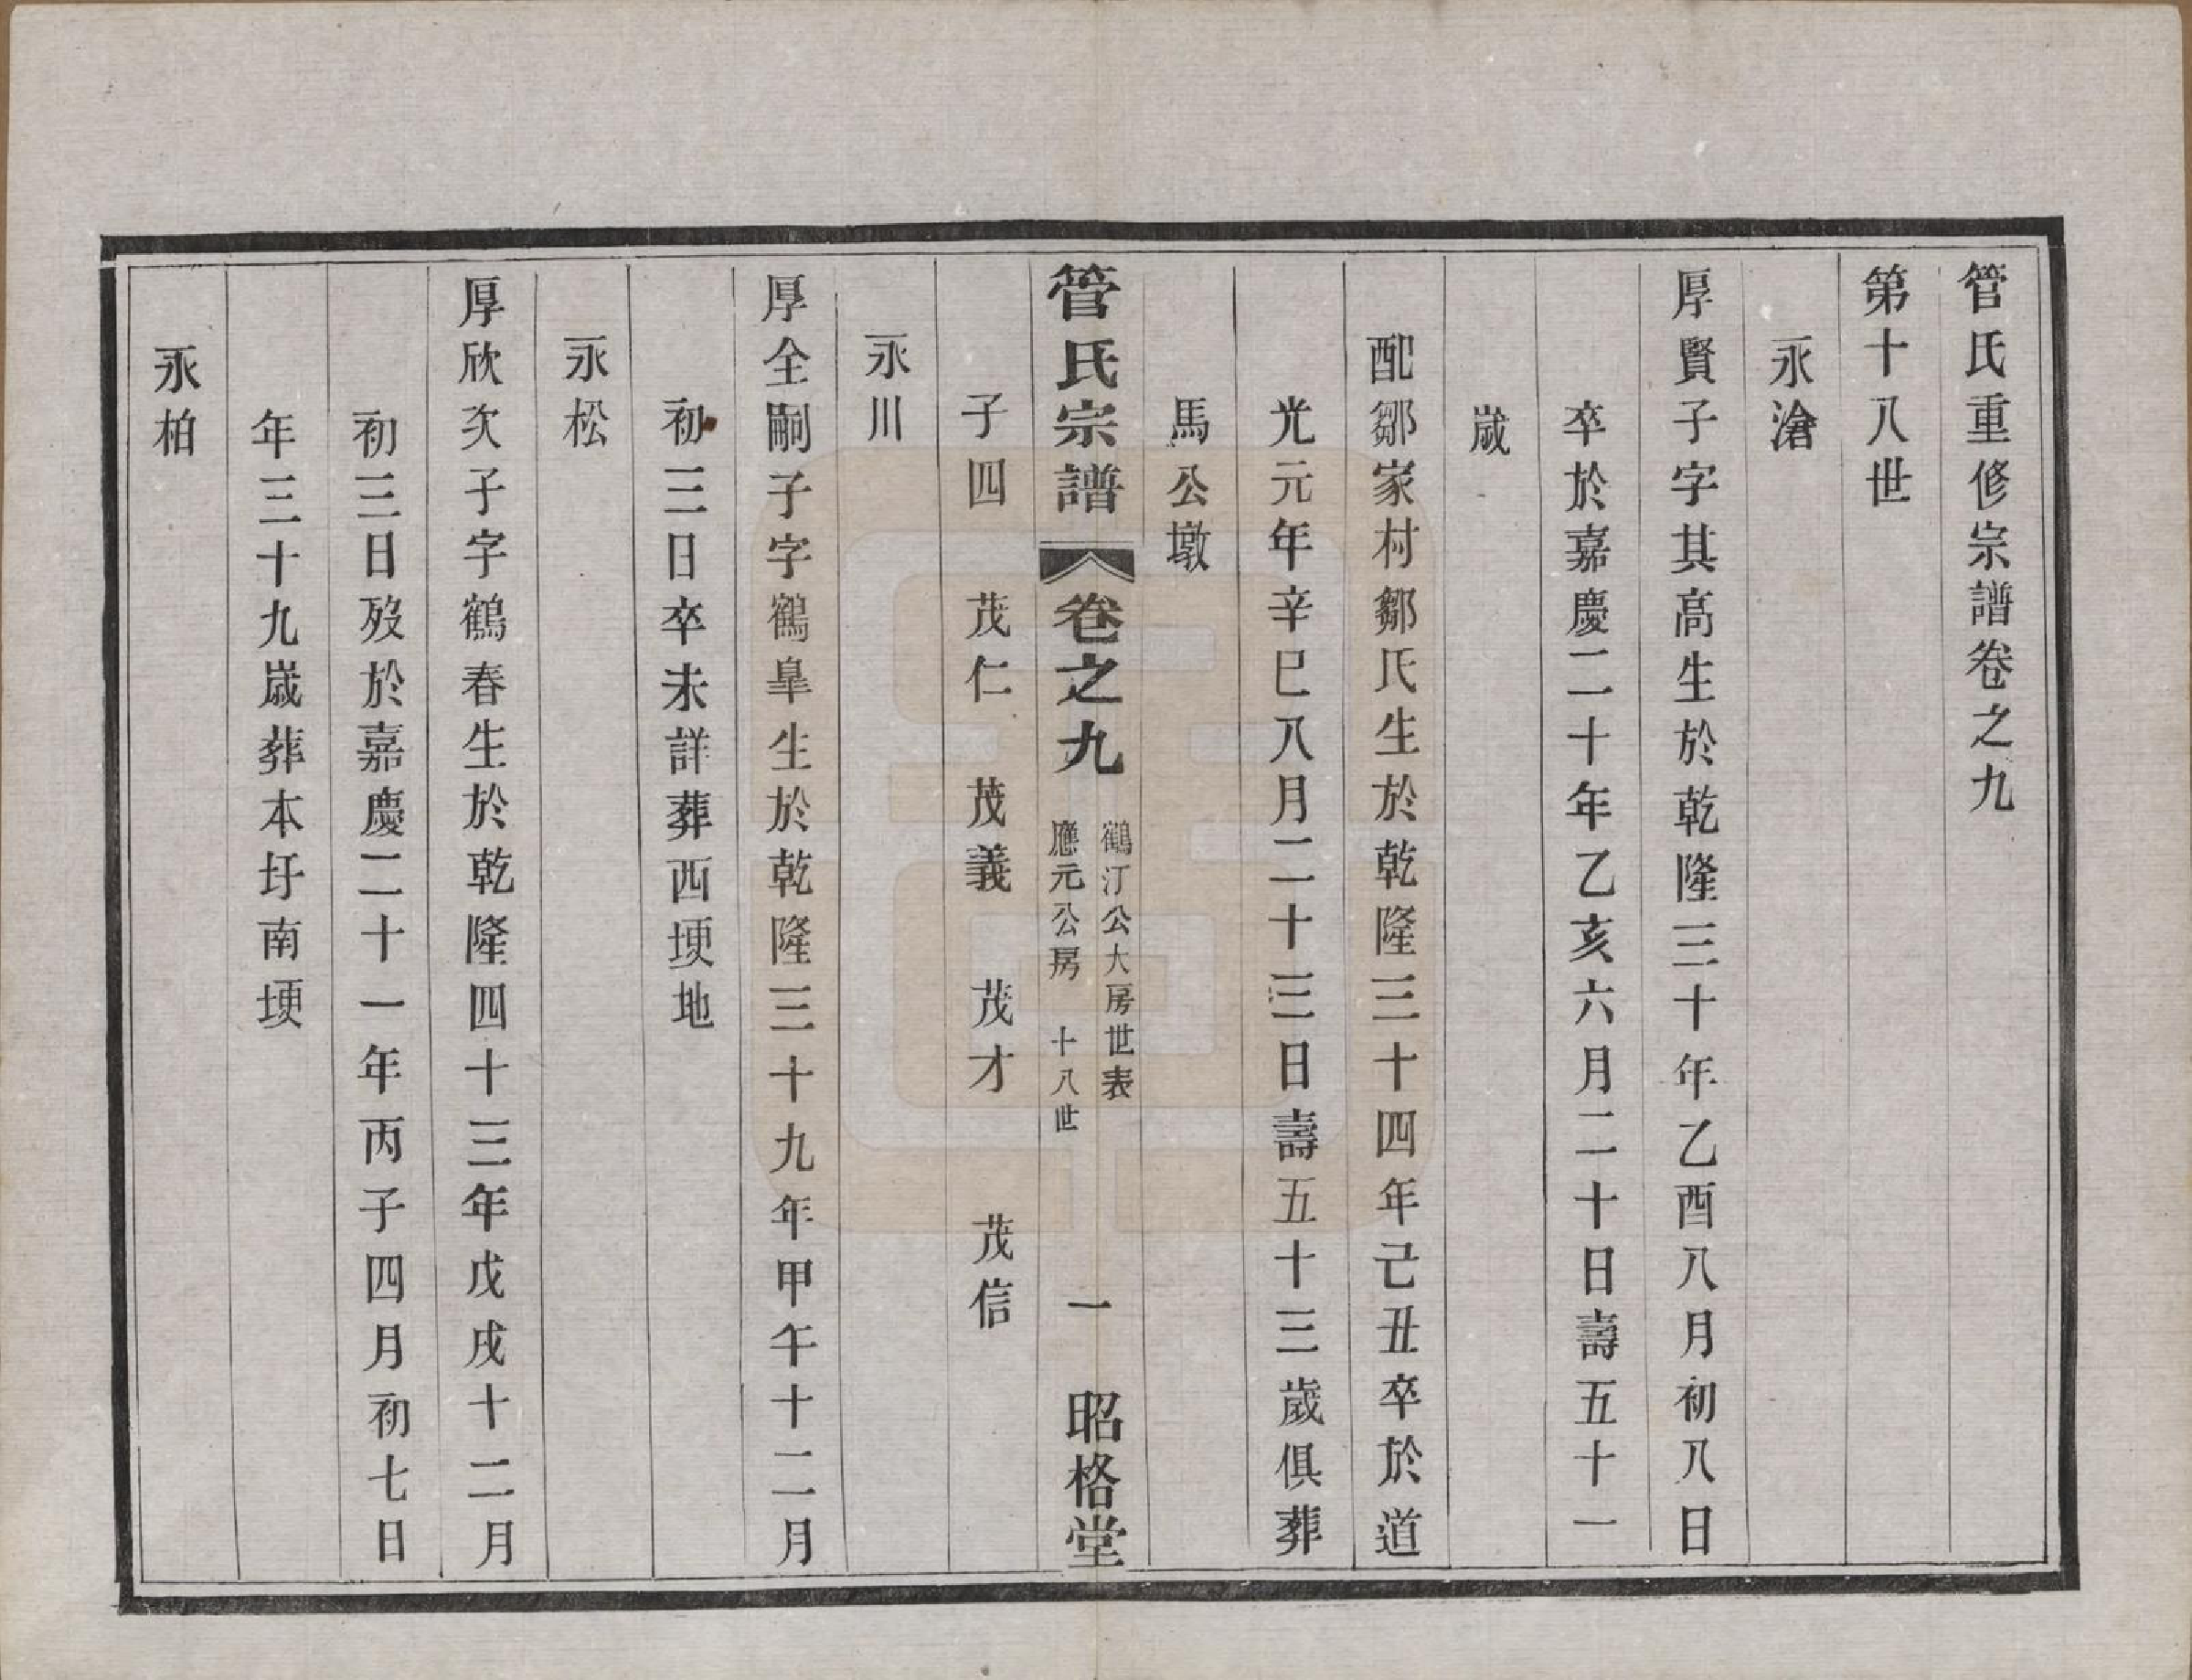 管氏重修宗譜卷之九
第十八世
永滄
厚賢子字其高生於乾隆三十年乙酉八月初八日
卒於嘉慶二十年乙亥六月二十日壽五十一
歲
配鄒家村鄒氏生於乾隆三十四年己丑卒於道
光元年辛巳八月二十三日壽五十三歲俱葬
馬公墩
管氏宗譜 卷之九 鶴汀公大房世表 應元公房 十八世 一 昭格堂
子四 茂仁 茂義 茂才 茂信
永川
厚全嗣子字鶴臯生於乾隆三十九年甲午十二月
初三日卒未詳葬西埂地
永松
厚欣次子字鶴春生於乾隆四十三年戊戌十二月
初三日歿於嘉慶二十一年丙子四月初七日
年三十九歲葬本圩南埂
永柏